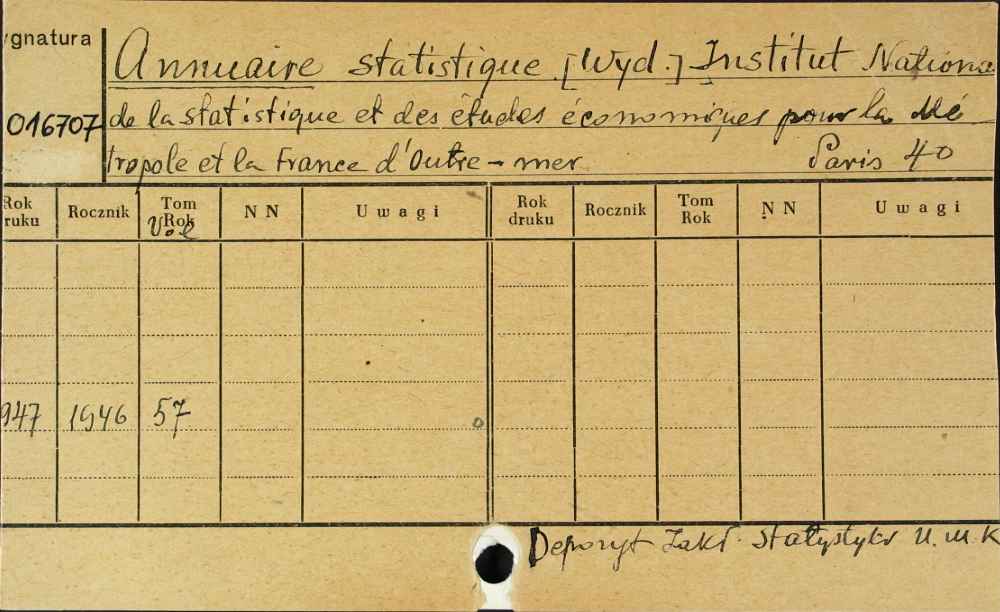 ygnatura
Annuaire statistique. [Wyd.] Institut Nationa
016707 de la statistique et des études économiques pour la Mé
tropole et la France d'Outre-mer Paris 40
Rok ruku Rocznik Tom Rok Vol N N Uwagi Rok druku Rocznik Tom Rok N N Uwagi
947 1946 57
Depozyt Zakł. Statystyki U.M.K